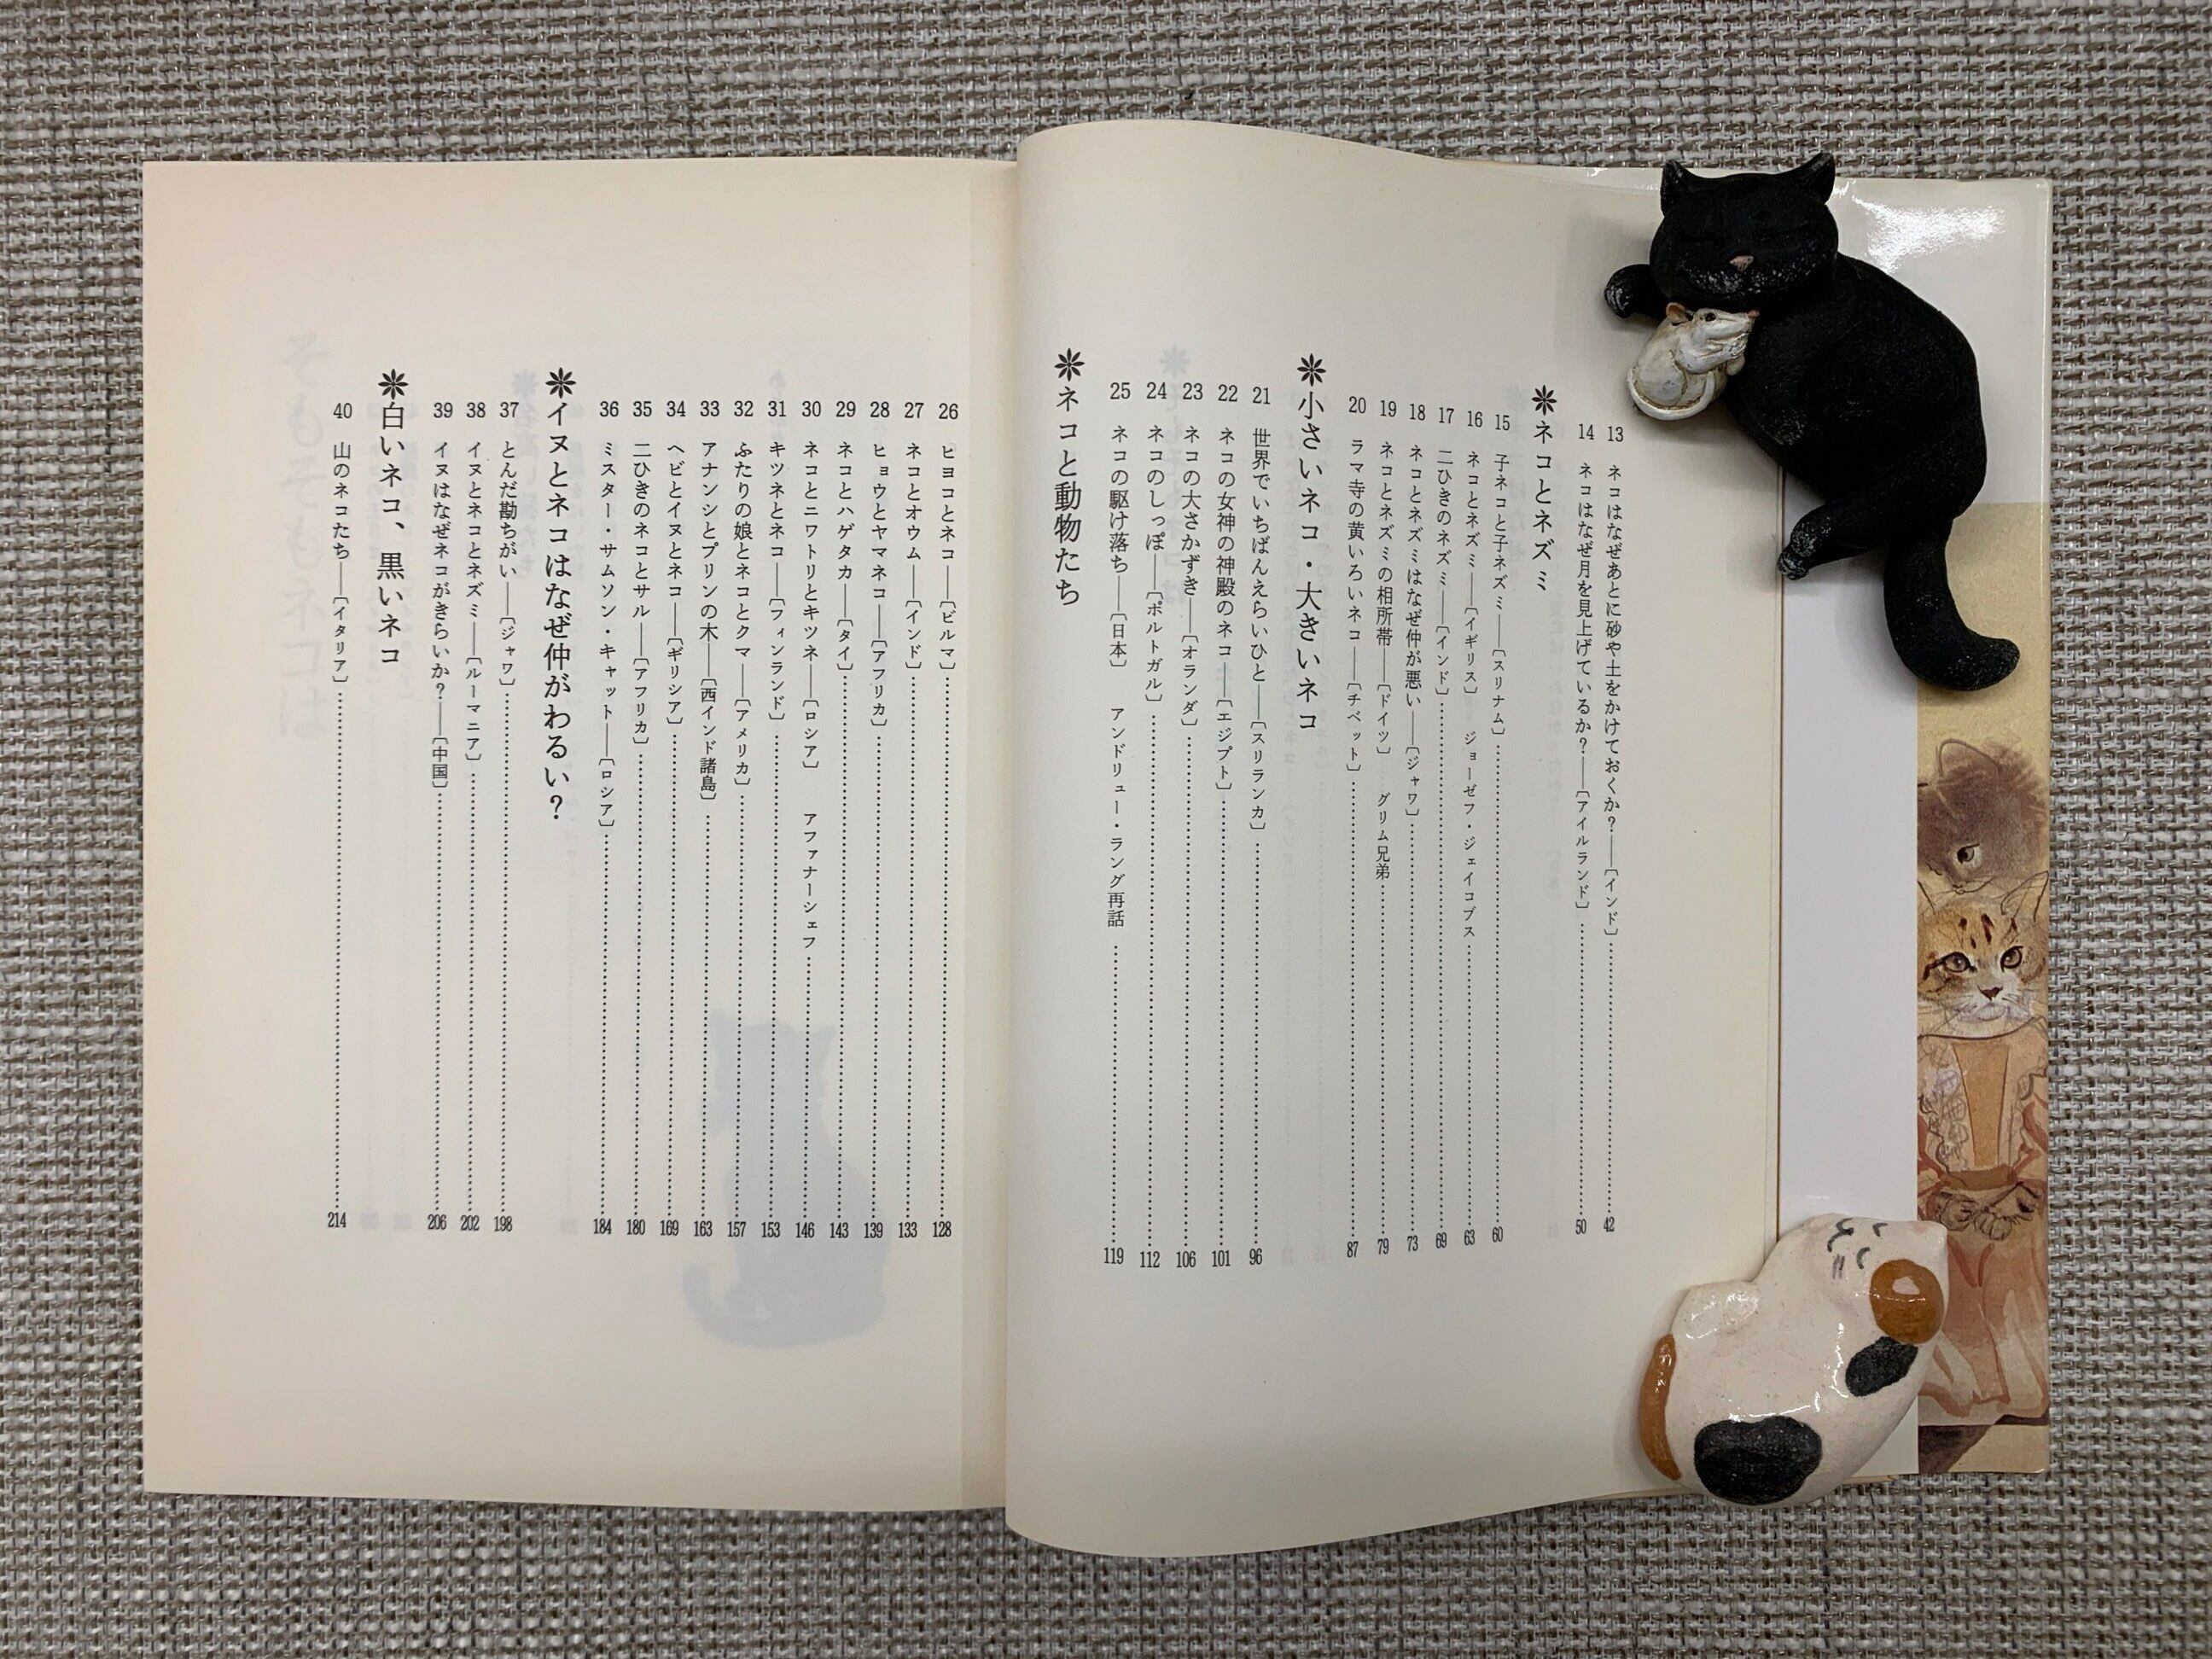 13 ネコはなぜあとに砂や土をかけておくか?――〔インド〕 42
14 ネコはなぜ月を見上げているか?――〔アイルランド〕 50
ネコとネズミ
15 子ネコと子ネズミ――〔スリナム〕 60
16 ネコとネズミ――〔イギリス〕 ジョーゼフ・ジェイコブス 63
17 二ひきのネズミ――〔インド〕 69
18 ネコとネズミはなぜ仲が悪い――〔ジャワ〕 73
19 ネコとネズミの相所帯――〔ドイツ〕 グリム兄弟 79
20 ラマ寺の黄いろいネコ――〔チベット〕 87
小さいネコ・大きいネコ
21 世界でいちばんえらいひと――〔スリランカ〕 96
22 ネコの女神の神殿のネコ――〔エジプト〕 101
23 ネコの大さかずき――〔オランダ〕 106
24 ネコのしっぽ――〔ポルトガル〕 112
25 ネコの駆け落ち――〔日本〕 アンドリュー・ラング再話 119
ネコと動物たち
26 ヒヨコとネコ――〔ビルマ〕 128
27 ネコとオウム――〔インド〕 133
28 ヒョウとヤマネコ――〔アフリカ〕 139
29 ネコとハゲタカ――〔タイ〕 143
30 ネコとニワトリとキツネ――〔ロシア〕 アファナーシェフ 146
31 キツネとネコ――〔フィンランド〕 153
32 ふたりの娘とネコとクマ――〔アメリカ〕 157
33 アナンシとプリンの木――〔西インド諸島〕 163
34 ヘビとイヌとネコ――〔ギリシア〕 169
35 二ひきのネコとサル――〔アフリカ〕 180
36 ミスター・サムソン・キャット――〔ロシア〕 184
イヌとネコはなぜ仲がわるい?
37 とんだ勘ちがい――〔ジャワ〕 198
38 イヌとネコとネズミ――〔ルーマニア〕 202
39 イヌはなぜネコがきらいか?――〔中国〕 206
白いネコ、黒いネコ
40 山のネコたち――〔イタリア〕 214